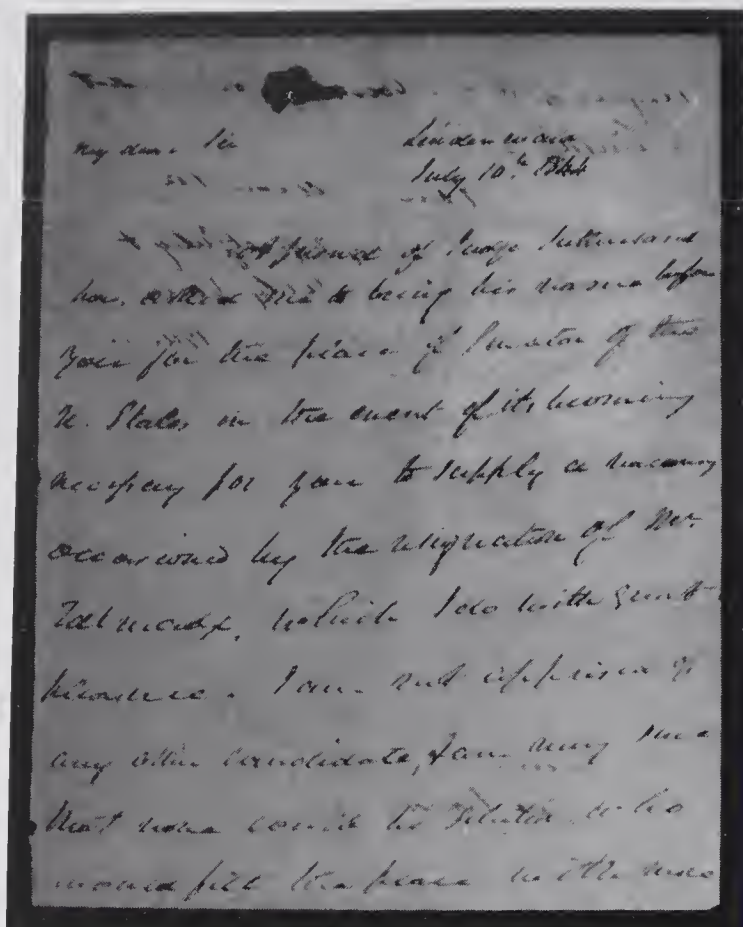 My dear Sir Lindenwald
July 10th 1844
friend of Judge Sutherland
has asked me to bring his name before
you for the place of Senator of the
U. States in the event of its becoming
necessary for you to supply a vacancy
occasioned by the resignation of Mr.
Talmadge, which I do with great
pleasure. I am not apprised of
any other candidate, & am very sure
that none could be selected who
would fill the place with more